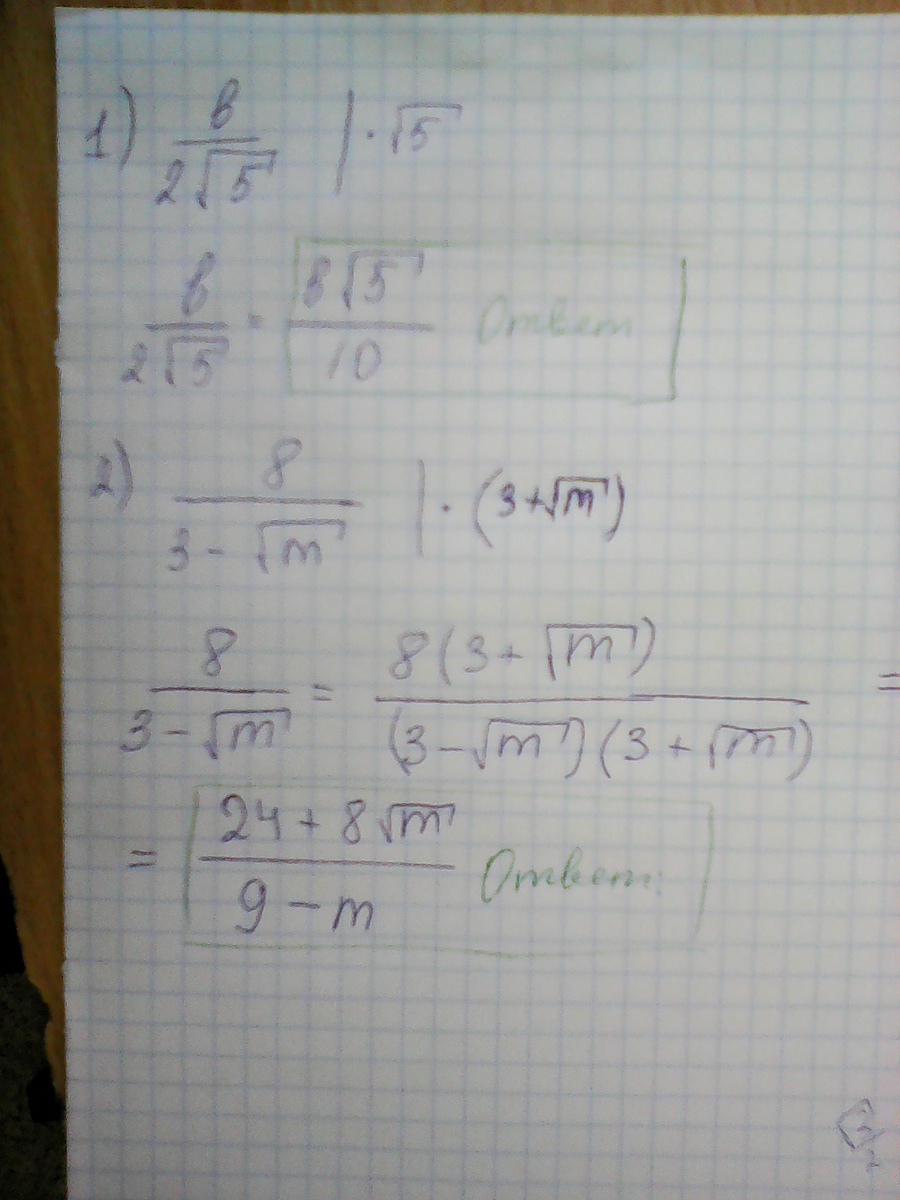 1) в/2√5 | · √5
в/2√5 = в√5/10 Ответ
2) 8/3 - √m | · (3+√m)
8/3 - √m = 8(3 + √m)/(3 - √m)(3 + √m) =
= 24 + 8√m/9 - m Ответ.